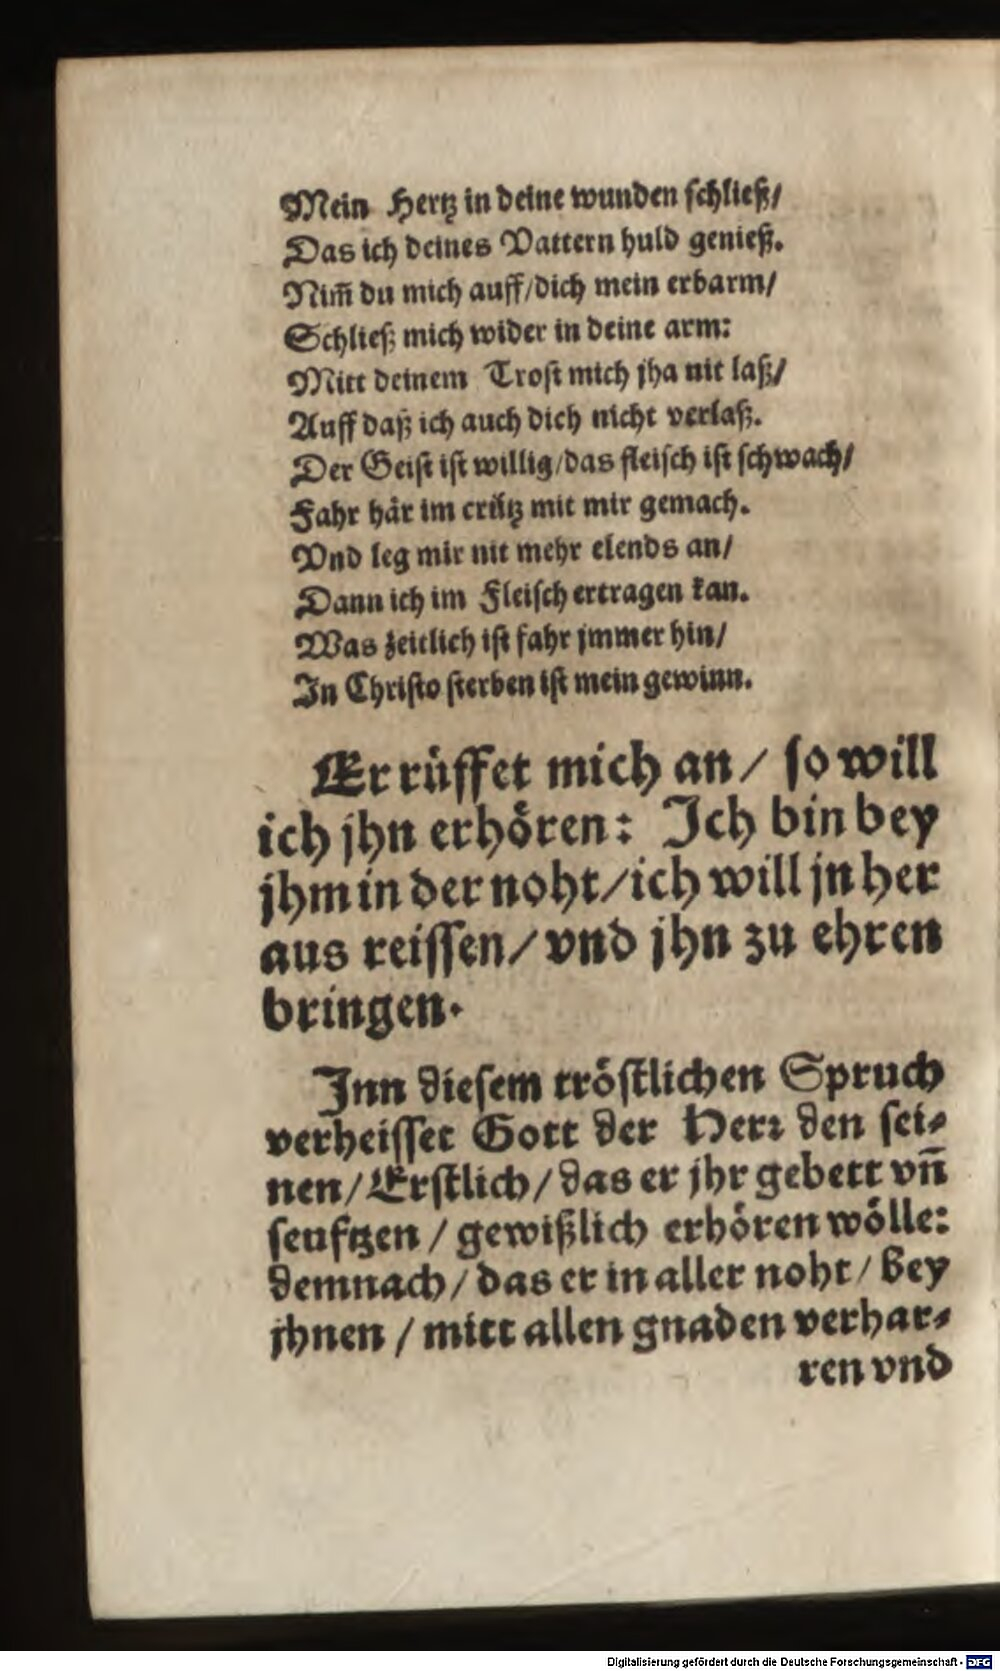 Mein Hertz in deine wunden schließ/
Das ich deines Vattern huld genieß.
Nim̃ du mich auff/dich mein erbarm/
Schließ mich wider in deine arm:
Mitt deinem Trost mich jha nit laß/
Auff daß ich auch dich nicht verlaß.
Der Geist ist willig/das fleisch ist schwach/
Fahr här im crütz mit mir gemach.
Vnd leg mir nit mehr elends an/
Dann ich im Fleisch ertragen kan.
Was zeitlich ist fahr jmmer hin/
In Christo sterben ist mein gewinn.
Er rüffet mich an/ so will
ich jhn erhören: Ich bin bey
jhm in der noht/ich will jn her
aus reissen/vnd jhn zu ehren
bringen.
Inn diesem tröstlichen Spruch
verheisset Gott der Herr den sei-
nen/Erstlich/das er jhr gebett vñ
seuftzen/gewißlich erhören wölle:
demnach/das er in aller noht/bey
jhnen/mitt allen gnaden verhar-
ren vnd
Digitalisierung gefördert durch die Deutsche Forschungsgemeinschaft - DFG